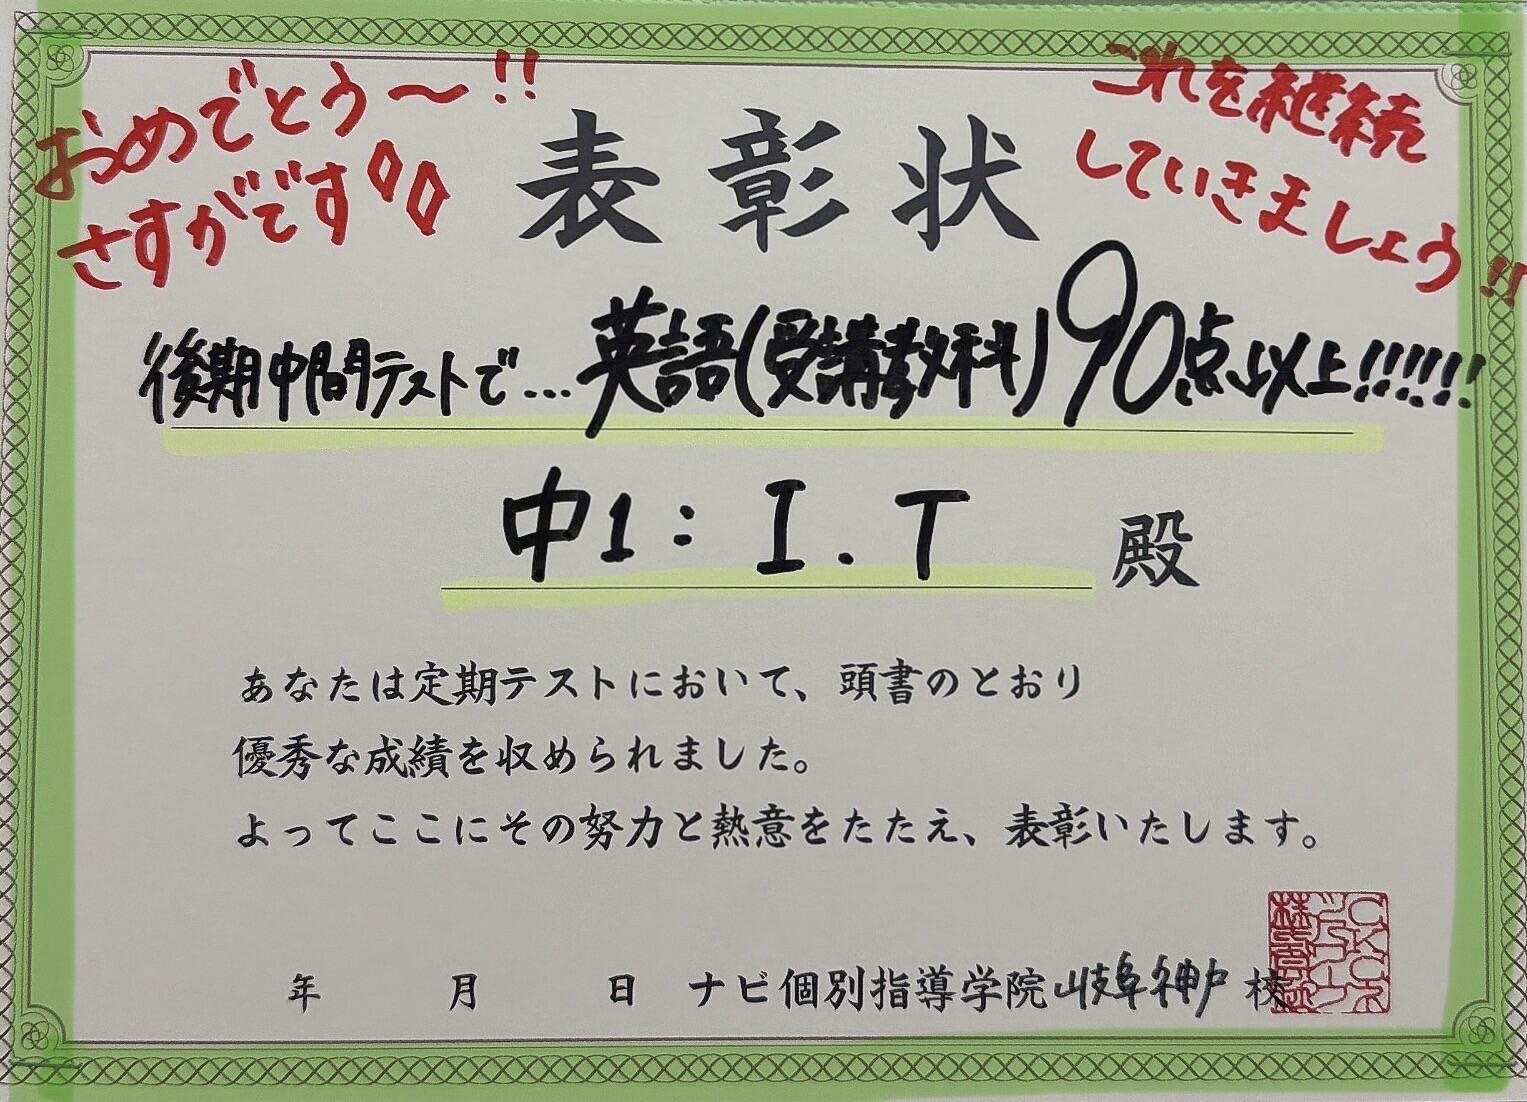 おめでとう〜!!
さすがです
これを継続
していきましょう!!
表彰状
後期中間テストで...英語(受講教科)90点以上!!!!!!
中1：I.T 殿
あなたは定期テストにおいて、頭書のとおり
優秀な成績を収められました。
よってここにその努力と熱意をたたえ、表彰いたします。
年 月 日 ナビ個別指導学院岐阜神戸校